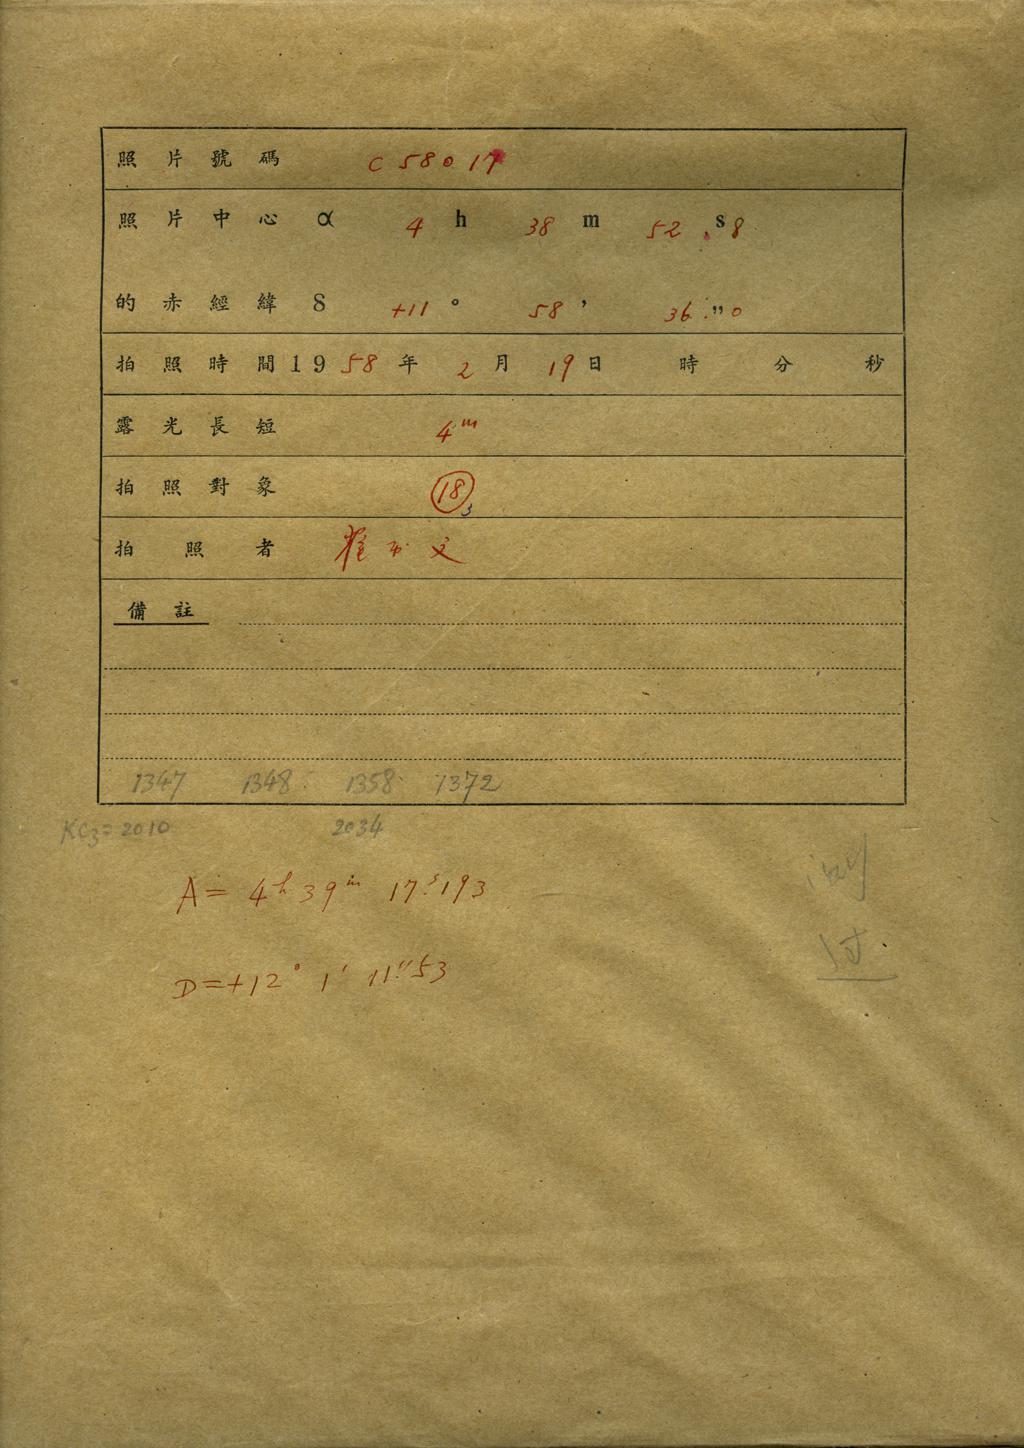 照片號碼 C58017
照片中心 α 4 h 38 m 52 .s 8
的赤經緯 δ +11 ° 58 ′ 36 ." 0
拍照時間 1958年 2月 19日 時 分 秒
露光長短 4ᵐ
拍照對象 18 3
拍照者 文
備註
1347 1348 1358 1372
KC3=2010 2034
A= 4ʰ39ᵐ 17ˢ.193
D=+12° 1′ 11″.53
过